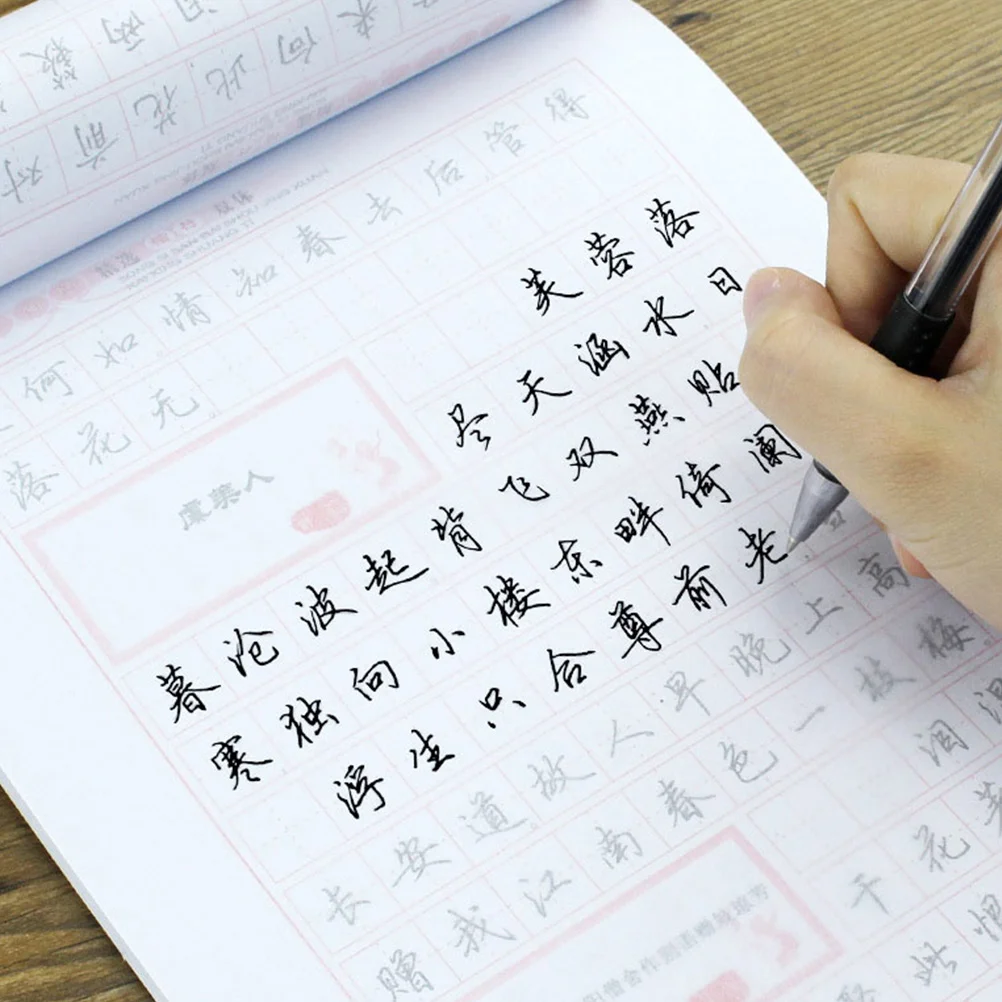 两簌
来向此花前对
何如情知春去后管得
落花无
虞美人
芙蓉落
尽天涵水日
暮沧波起背飞双燕贴
寒独向小楼东畔倚阑
浮生只合尊前老
长安道故人早晚上高
赠我江南春色一枝梅
泪湿
干花
此恨